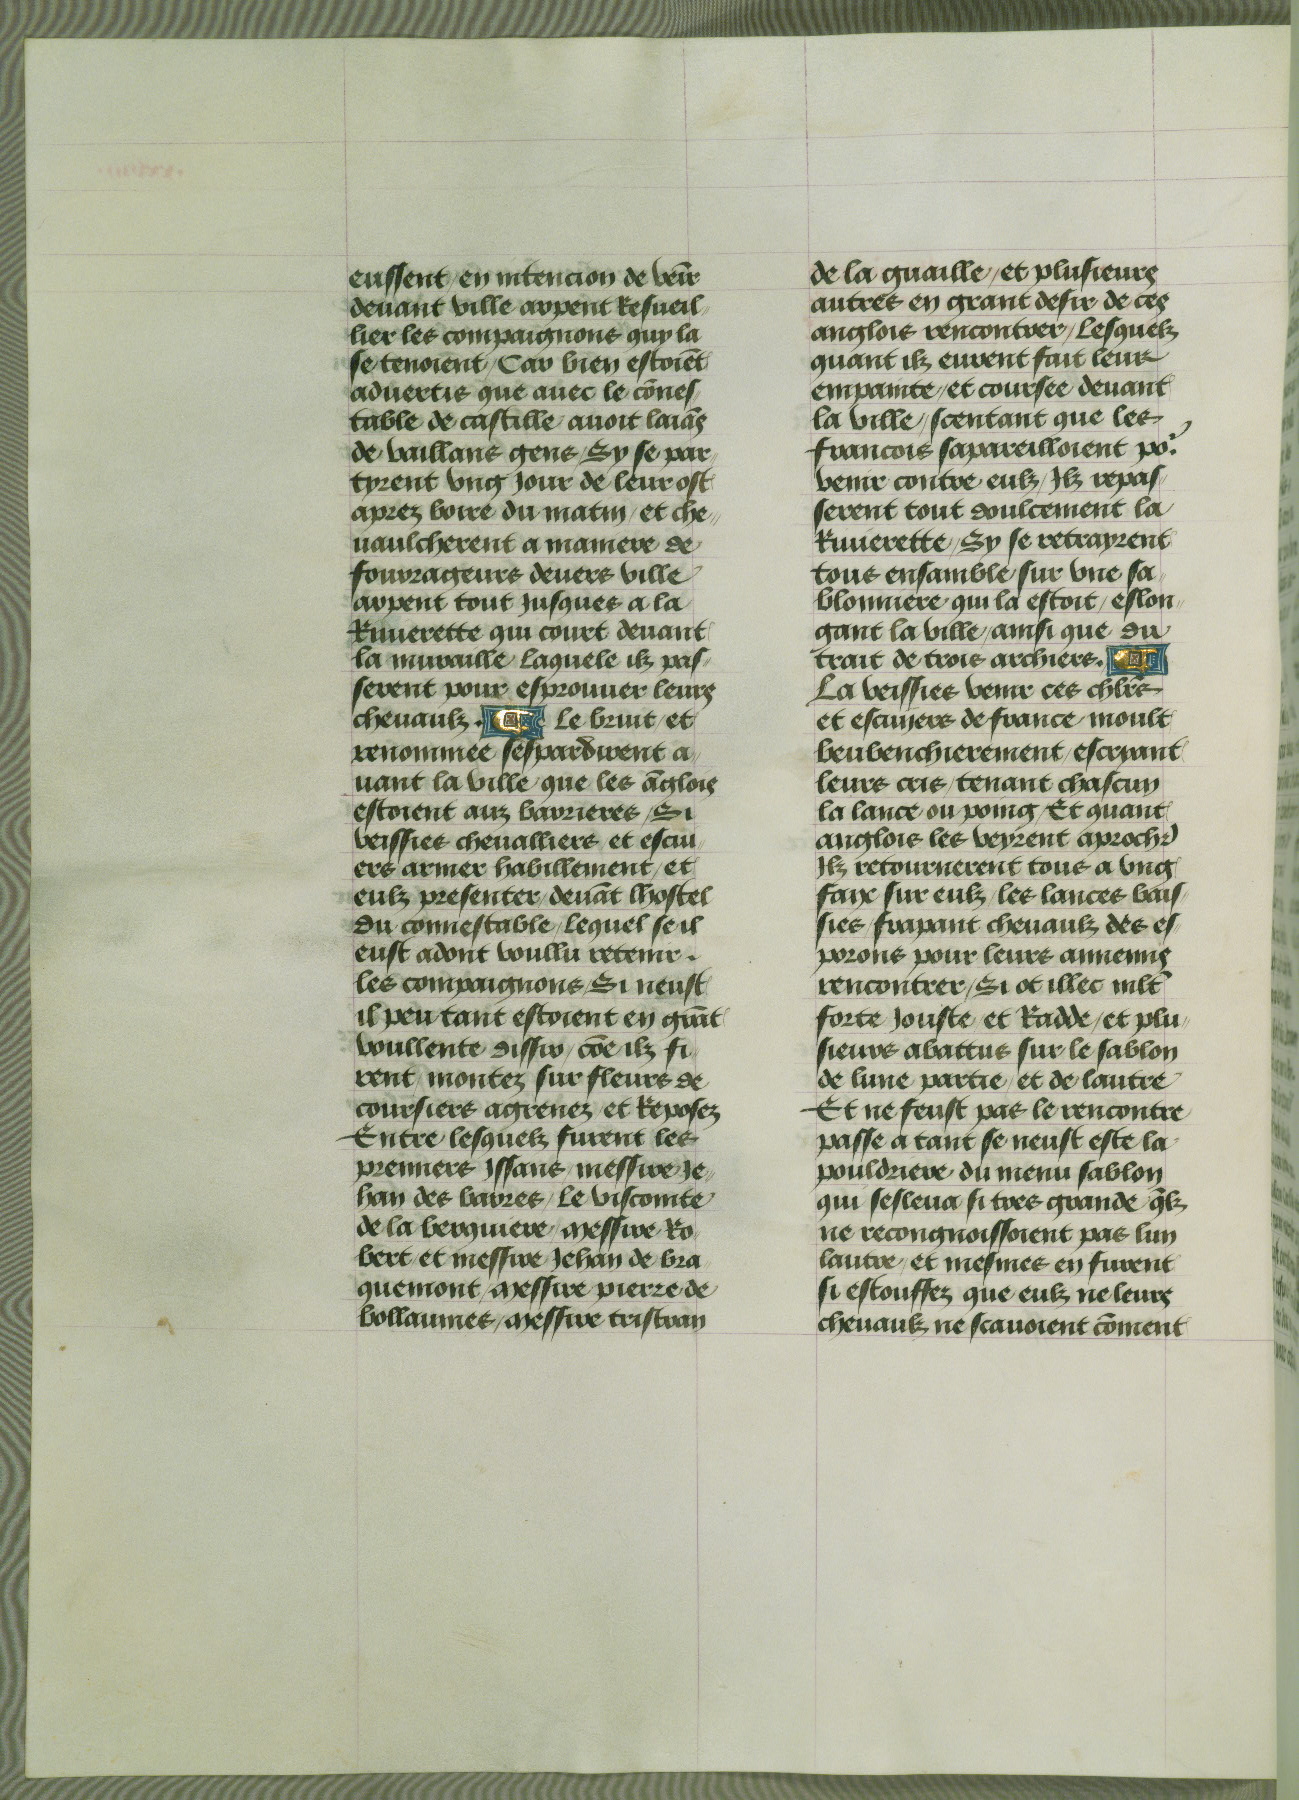 eussent / en intencion de veīr
deuant ville arpent Resueil/
lier les compaignons quy la
se tenoient / Car bien estoiēt
aduertis que auec le cōnes/
table de castille auoit laiās
de vaillans gens / Sy se par/
tyrent vng Jour de leur ost
aprez boire du matin / et che//
uaulcherent a maniere de
fourrageurs deuers ville
arpent tout Jusques a la
Riuierette qui court deuant
la muraille laquele ilz pas/
serent pour esprouuer leurs
cheuaulz . Le bruit et
renommee sespardirent a/
uant la ville que les āglois
estoient aux barrieres / Si
veissies cheualliers et escui/
ers armer habillement / et
eulz presenter deuāt lhostel
du connestable / lequel se il
eust adont voullu retenir .
les compaignons / Si neust
il peu tant estoient en grāt
voullente dissir / cōe ilz fi/
rent / montez sur fleurs de
coursiers agrenez et Reposez
Entre lesquelz furent les
premiers Jssans messire Je/
han des barres / le viscomte
de la berquiere / messire Ro/
bert et messire Jehan de bra/
quemont / messire pierre de
vollaumes / messire tristran
de la guaille / et plusieurs
autres en grant desir de ces
anglois rencontrer / Lesquelz
quant ilz eurent fait leur
empainte / et coursee deuant
la ville / scentant que les
francois sapareilloient poʳ
venir contre eulz / Ilz repas/
serent tout doulcement la
Riuierette / Sy se retrayrent
tous ensamble sur vne sa/
blonniere qui la estoit / eslon//
gant la ville / ainsi que du
trait de trois archiers .
La veissies venir ces chlr̄s
et escuiers de france moult
beubenchierement / escryant
leurs cris / tenant chascun
la lance ou poing / Et quant
anglois les veyrent aproch̉
Ilz retournerent tous a vng
faix sur eulz / les lances bais/
sies / frapant cheuaulz des es/
porons pour leurs annemis
rencontrer / Si ot illec mlt̄
forte Jouste et Radde / et plu/
sieurs abattus sur le sablon
de lune partie / et de lautre
Et ne feust pas le rencontre
passe a tant se neust este la
pouldriere du menu sablon
qui sesleua si tres grande / q̄lz
ne recongnoissoient pas lun
lautre / et mesmes en furent
si estouffez que eulz ne leurs
cheuaulz ne scauoient cōment